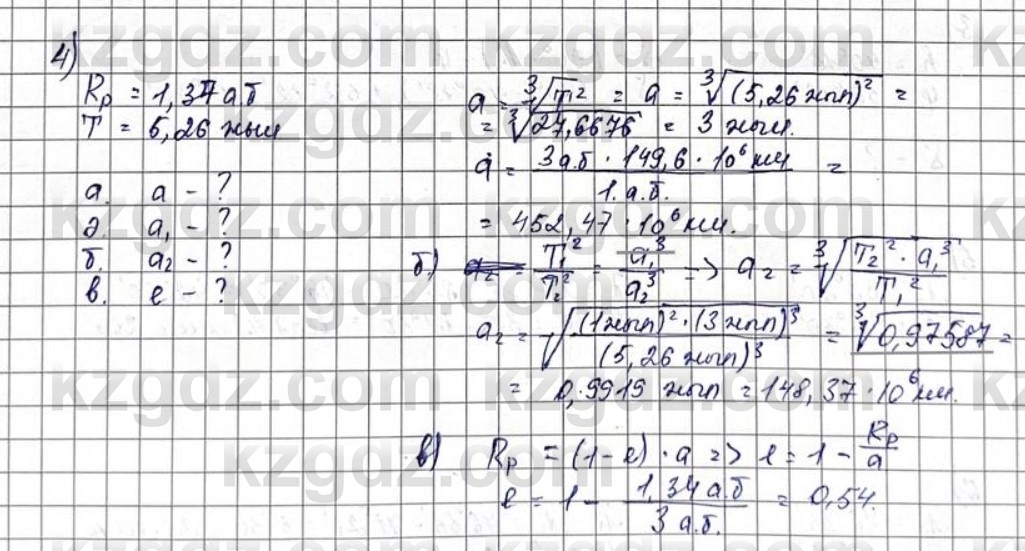 4)
Rp = 1,34 а.б
T = 5,26 жыл
а. a - ?
ә. a₁ - ?
б. a₂ - ?
в. e - ?
a = ∛T² = a = ∛(5,26 жыл)² =
= ∛27,6676 = 3 жыл.
a = 3 а.б · 149,6 · 10⁶ км / 1. а.б. =
= 452,47 · 10⁶ км.
б) T₁² / T₂² = a₁³ / a₂³ => a₂ = ∛T₂² · a₁³ / T₁²
a₂ = √(1 жыл)² · (3 жыл)³ / (5,26 жыл)³ = ∛0,97587 =
= 0,9919 жыл = 148,37 · 10⁶ км.
в) Rp = (1 - e) · a => e = 1 - Rp / a
e = 1 - 1,34 а.б / 3 а.б. = 0,54.
kzgdz.com